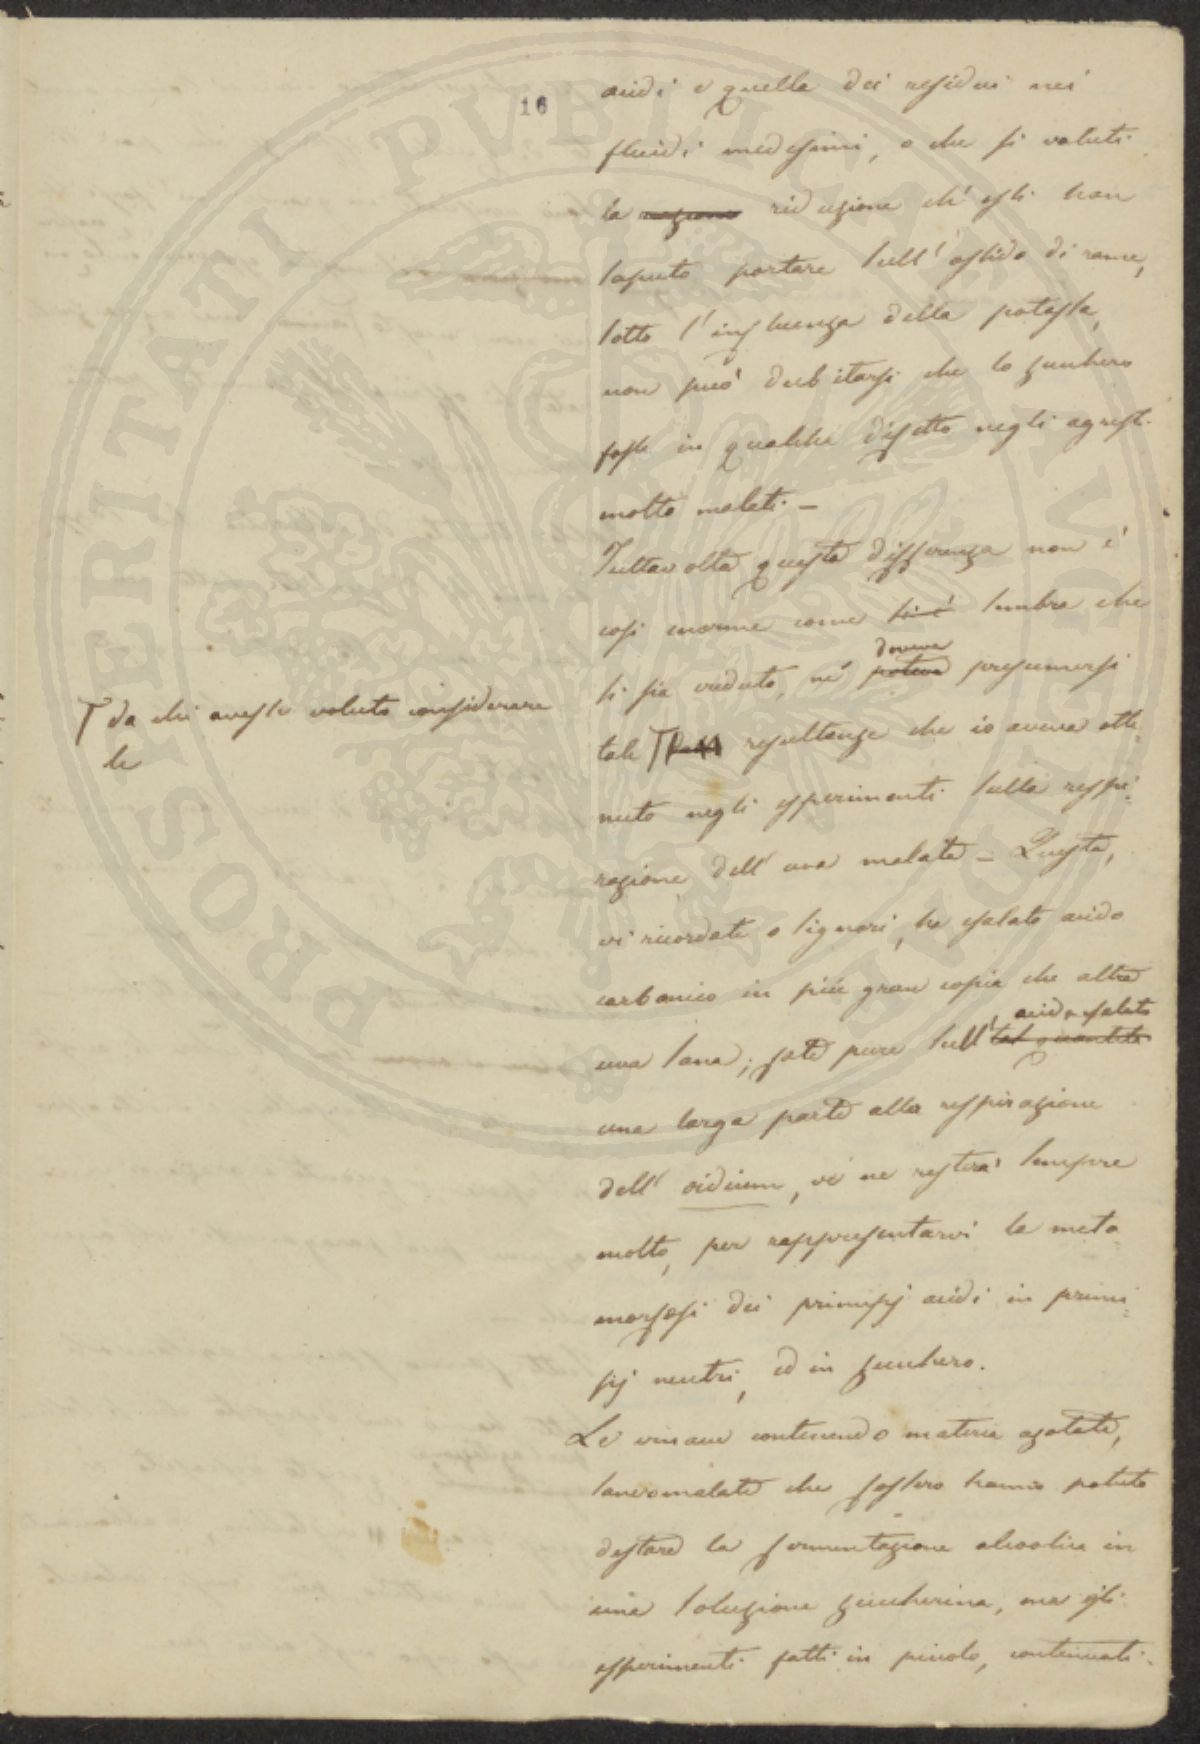 16
acidi e quella dei residui nei
fluidi medesimi, o che si valuti
la ragione riduzione ch'essi han
saputo portare sull'ossido di rame,
sotto l'influenza della potassa,
non può dubitarsi che lo zucchero
fosse in qualche difetto negli agresti
molto malati –
Tuttavolta questa differenza non è
così enorme come si è sembra che
doveva
si sia veduto, nè poteva presumersi
tale T resultanze che io aveva otte-
T da chi avesse voluto considerare
le
nuto negli esperimenti sulla respi-
razione dell'uva malata – Questa,
vi ricordate o signori, ha esalato acido
carbonico in più gran copia che altra
acido esalato
uva sana; fate pure sull' tal quantità
una larga parte alla respirazione
dell'oidium, ve ne resterà sempre
molto, per rappresentarvi la meta-
morfosi dei principj acidi in princi-
pj neutri, ed in zucchero.
Le vinacce contenendo materia azotata,
sane o malate che fossero hanno potuto
destare la fermentazione alcoolica in
una soluzione zuccherina, ma gli
esperimenti fatti in piccolo, continuati
PROSPERITATI PUBLICAE AUGENDAE